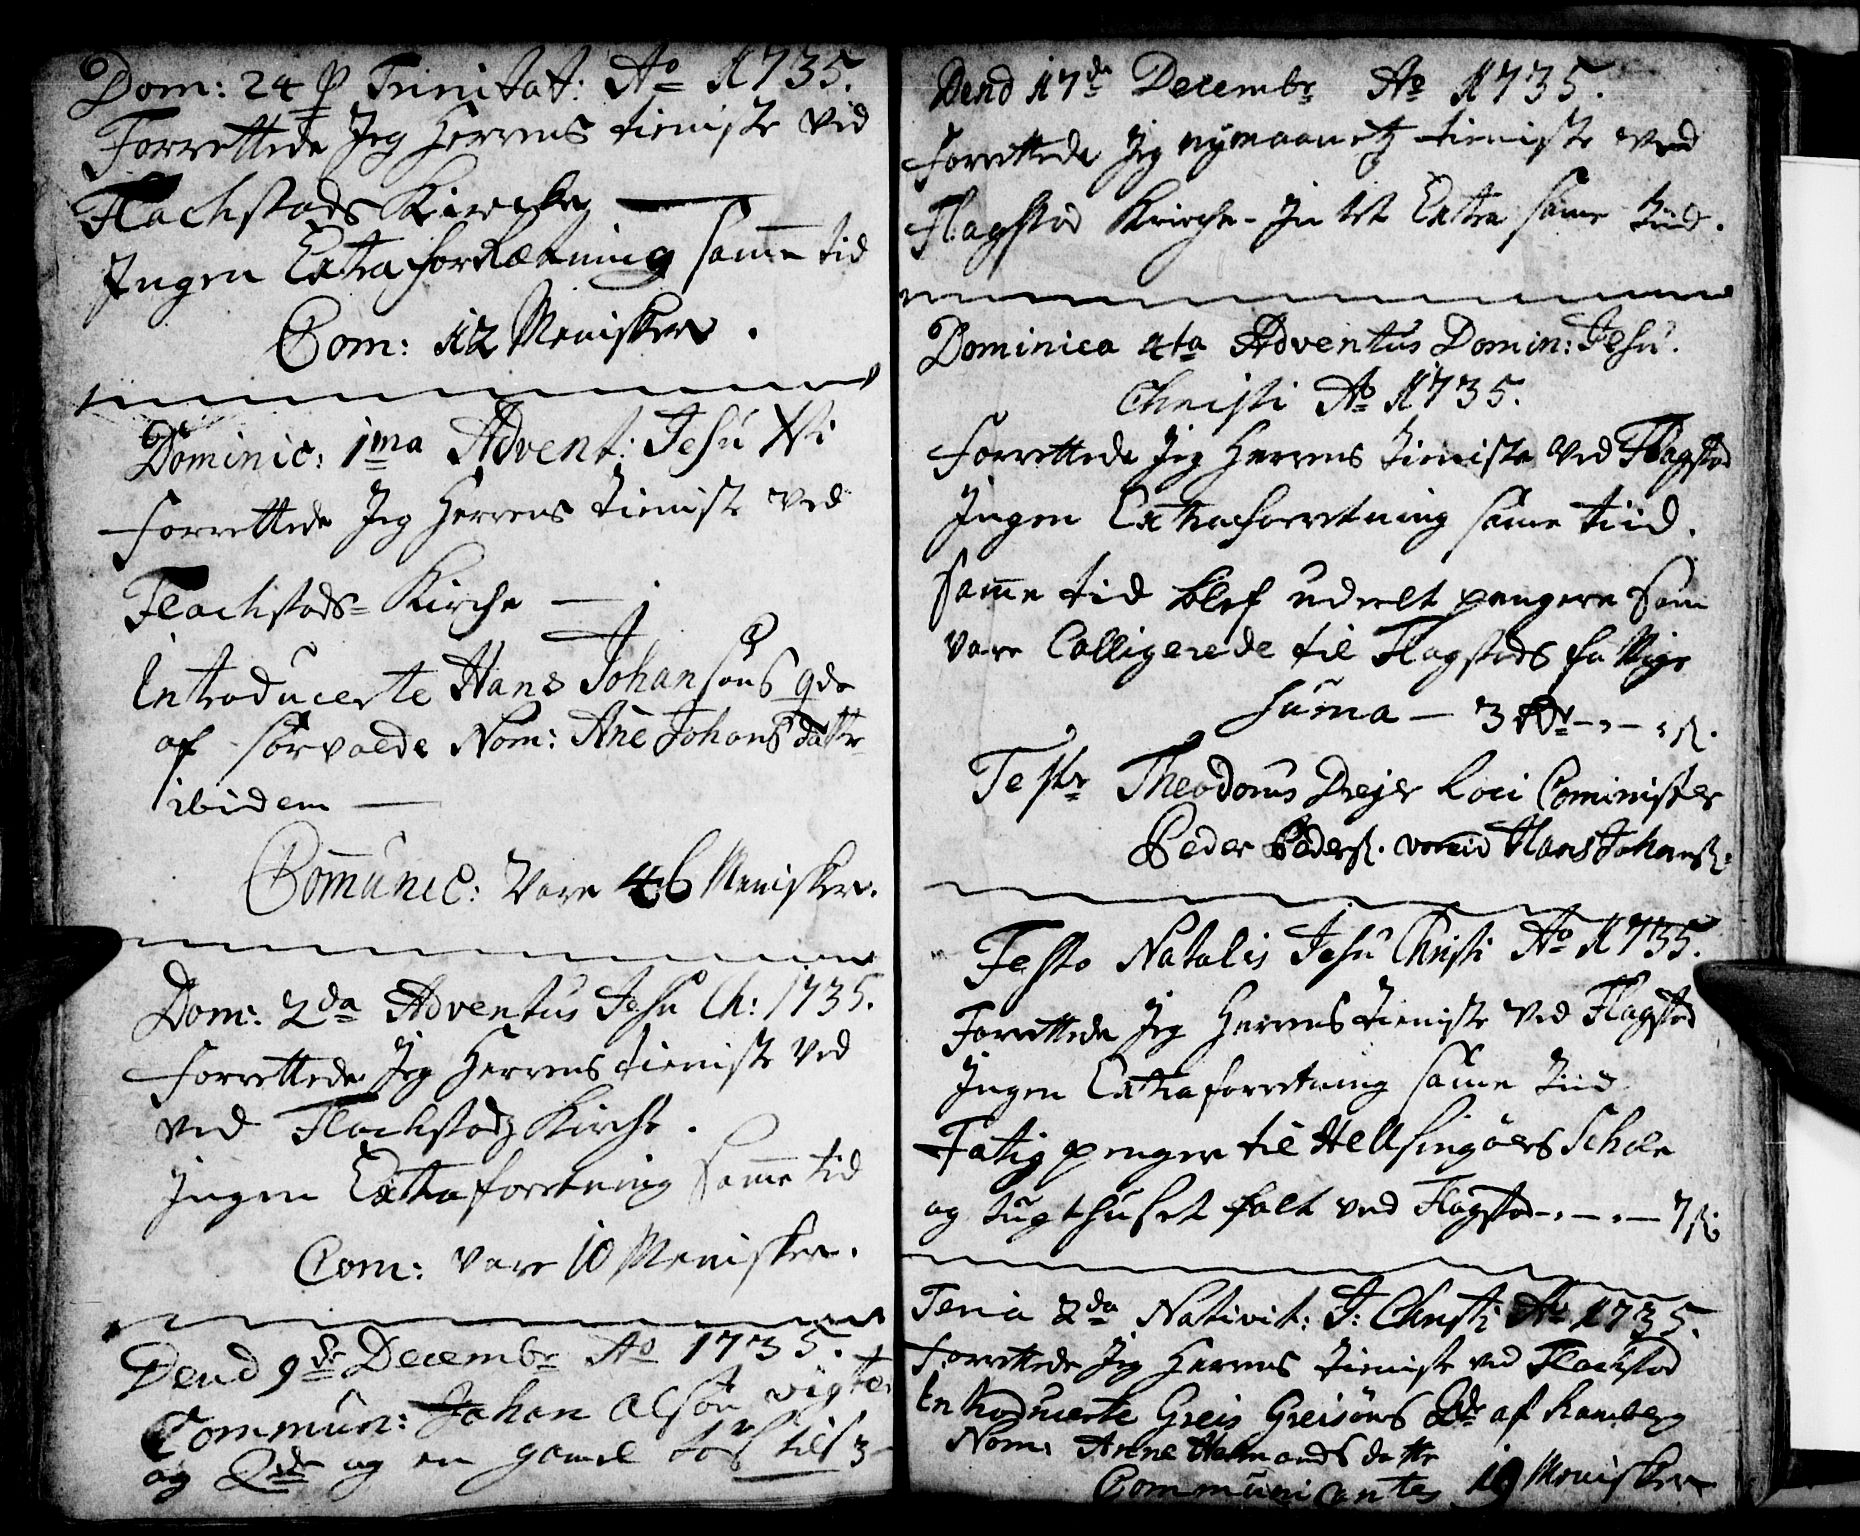 Dom: 24 p Trinitat: Ao 1735.
Forrettede Jeg Herrens tieniste ved
Flachstads Kirche
Ingen Extraforretning samme tid
Com: 12 Menisker.
Dominic: 1ma Advent: Jesu Xti
Forrettede Jeg Herrens tieniste ved
Flachstads Kirche
Introducerte Hans Johansøns qde
af Sørvaade Nom: Ane Johans datter
ibidem
Communic: Vare 46 Menisker.
Dom: 2da Adventus Jesu Ch: 1735.
Forrettede Jeg Herrens tieniste ved
ved Flachstadz Kirche.
Ingen Extraforretning samme tid
Com: vare 10 Menisker.
Dend 9de Decembr Ao 1735.
Commun: Johan Olsøn
og Qde og en gamel
Dend 17de Decembr Ao 1735.
Forrettede Jeg nymaanetz tieniste ved
Flagstad Kirche - Intet Extra same tiid.
Dominica 4ta Adventus Domin: Jesu.
Christi Ao 1735.
Forrettede Jeg Herrens tieniste ved Flagstad
Ingen Extraforretning same tiid.
Samme tid blef udeelt pengene som
vare Colligerede til Flagstads fattige
Suma - 3
Teste Theodorus Dreyer Loci Cominister
Peder Peders. Hans Johans:
Festo Natalis Jesu Christi Ao 1735.
Forrettede Jeg Herrens tieniste ved Flagstad
Ingen Extraforretning same tiid
Fatig penger til Hellsingøers Schole
og tugthuset falt ved Flagstad - - - 7
Feria 2da Nativit: J: Christi Ao 1735.
Forrettede Jeg Herrens tieniste ved Flachstad
Introducerte Greis Greisøns Qde af Ramberg
Nom: Anne datter
Communicantes 19 Menisker